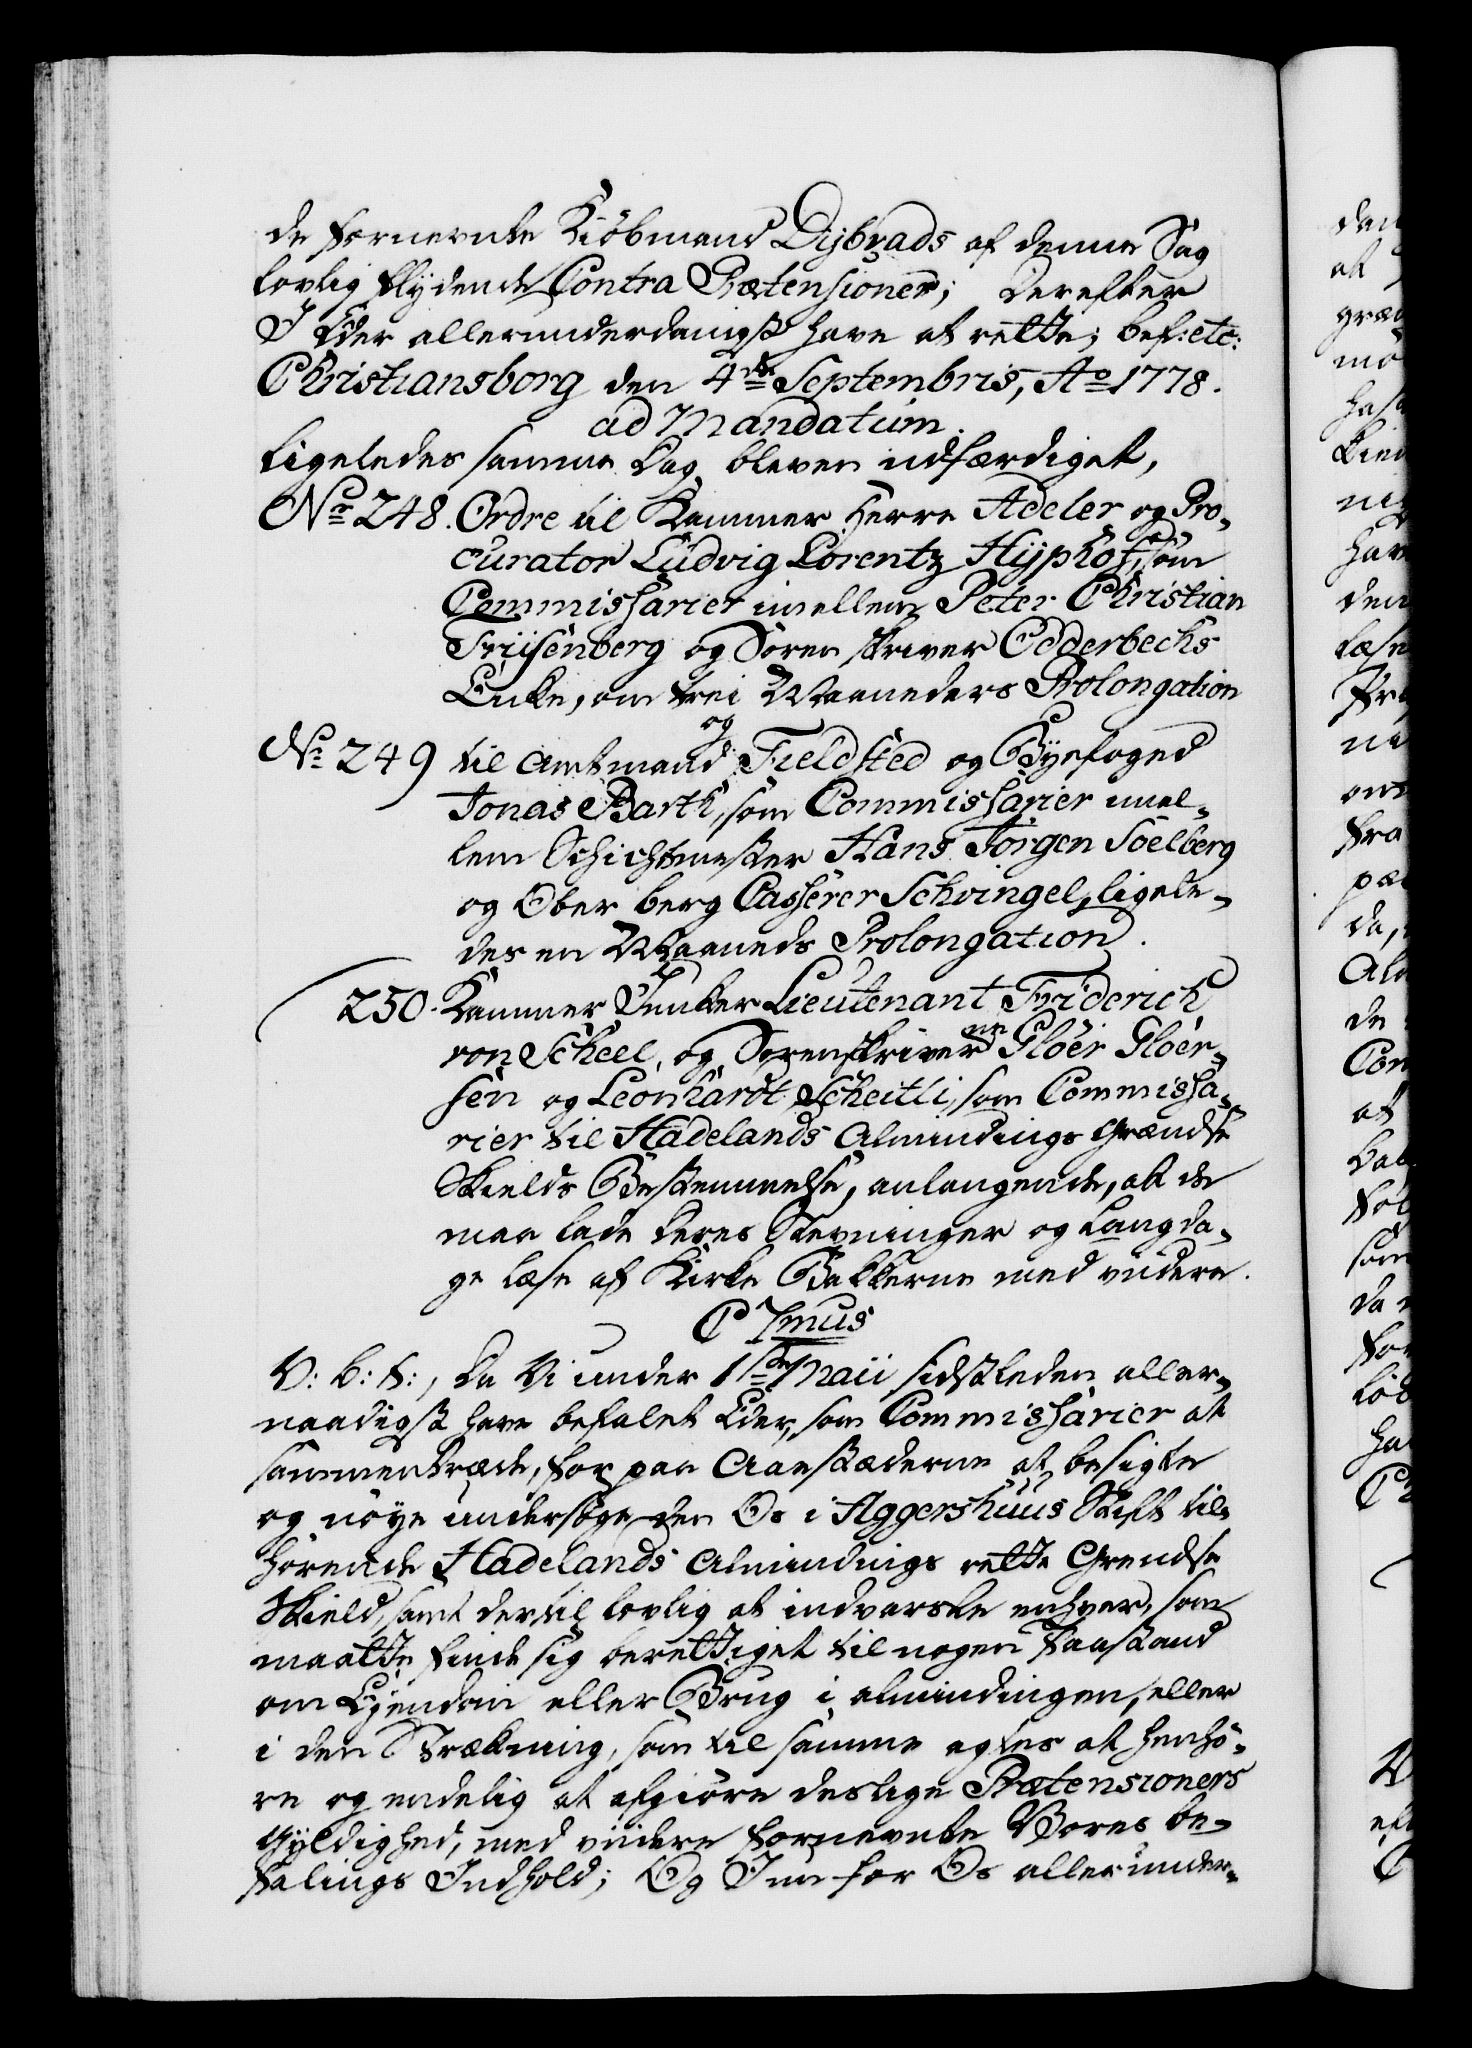 de fornevnte Kiöbmand Dijbrads af denne Sag
lovlig flydende Contra Prætensioner; derefter
I Eder allerunderdanigst have at rette; bef: etc:
Christiansborg den 4de Septembris, Ao 1778.
ad Mandatum.
Ligeledes samme Dag bleven udfærdiget,
No 248. Ordre til Kammer Herre Adeler og Pro-
curator Ludvig Lorentz Hyphof, som
Commissarier imellem Peter Christian
Friisenberg og Sorenskriver Odderbechs
Enke, om trei Maaneders Prolongation
og
No 249 til Amtmand Fieldsted og Byefoged
Jonas Barth, som Commissarier imel-
lem Schichtmester Hans Jørgen Soelberg
og Ober berg Casserer Schvingel, ligele-
des en Maaneds Prolongation.
250. Kammer Junker Lieutenant Friderich
von Scheel, og Sorenskriverne Gløer Gløer-
sen og Leonhardt Scheitli, som Commissa-
rier til Hadelands Almindings Grændse
Skields Bestemmelse, anlangende, at de
maa lade deres Stevninger og Langda-
ge læse af Kirke Bakkerne med viidere.
C 7mus
V: G: T:, Da Vi under 1ste Maii sidstleden aller-
naadigst have befalet Eder, som Commissarier at
sammentræde, for paa Aaestæderne at besigte
og nøye undersøge den Os i Aggershuus Stift til-
hörende Hadelands Almindings rette Grendse
Skield, samt dertil lovlig at indvarsle enhver, som
maatte finde sig berettiget til nogen Paastand
om Ejendom eller Brug i Almindingen, eller
i den Strækning, som til samme agtes at henhö-
re og endelig at afgiöre deslige Prætensioners
Gyldighed, med viidere fornevnte Vores be-
falings Indhold; Og I nu for Os allerunder-